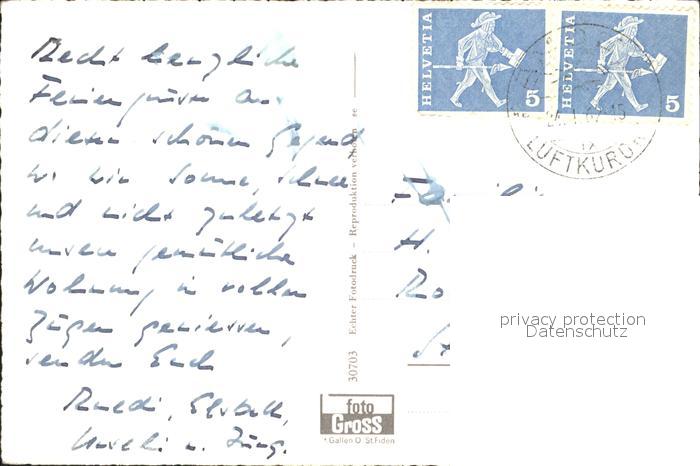 Recht herzliche
Feriengrüsse aus
dieser schönen Gegend
wo wir Sonne, Schnee
und nicht zuletzt
unsere gemütliche
Wohnung in vollen
Zügen geniessen,
senden Euch
Ruedi, Elsbeth,
Urseli u. Jürg.
HELVETIA 5
HELVETIA 5
LUFTKURO
H.
Ro
St
30703 Echter Fotodruck – Reproduktion verboten
foto
Gross
St. Gallen O St.Fiden
privacy protection
Datenschutz